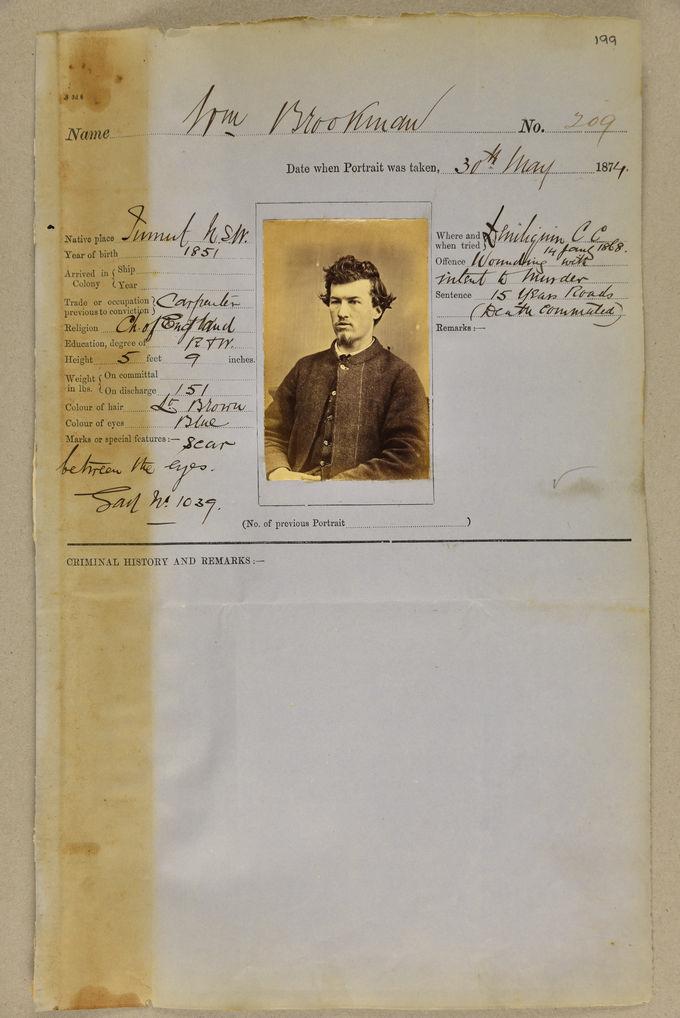 199
Name Wm Brookman No. 209
Date when Portrait was taken, 30th May 1874.
Native place Tumut N.S.W.
Year of birth 1851
Arrived in Colony { Ship
Year
Trade or occupation previous to conviction } Carpenter
Religion Ch. of England
Education, degree of R & W.
Height 5 feet 9 inches.
Weight in lbs. { On committal
On discharge 151
Colour of hair Lt Brown
Colour of eyes Blue
Marks or special features:— Scar
between the eyes.
Gaol No. 1039.
Where and when tried } Deniliquin C C
14 Jany 1868.
Offence Wounding with
intent to Murder
Sentence 15 Years Roads
(Death commuted)
Remarks:—
(No. of previous Portrait )
CRIMINAL HISTORY AND REMARKS:—